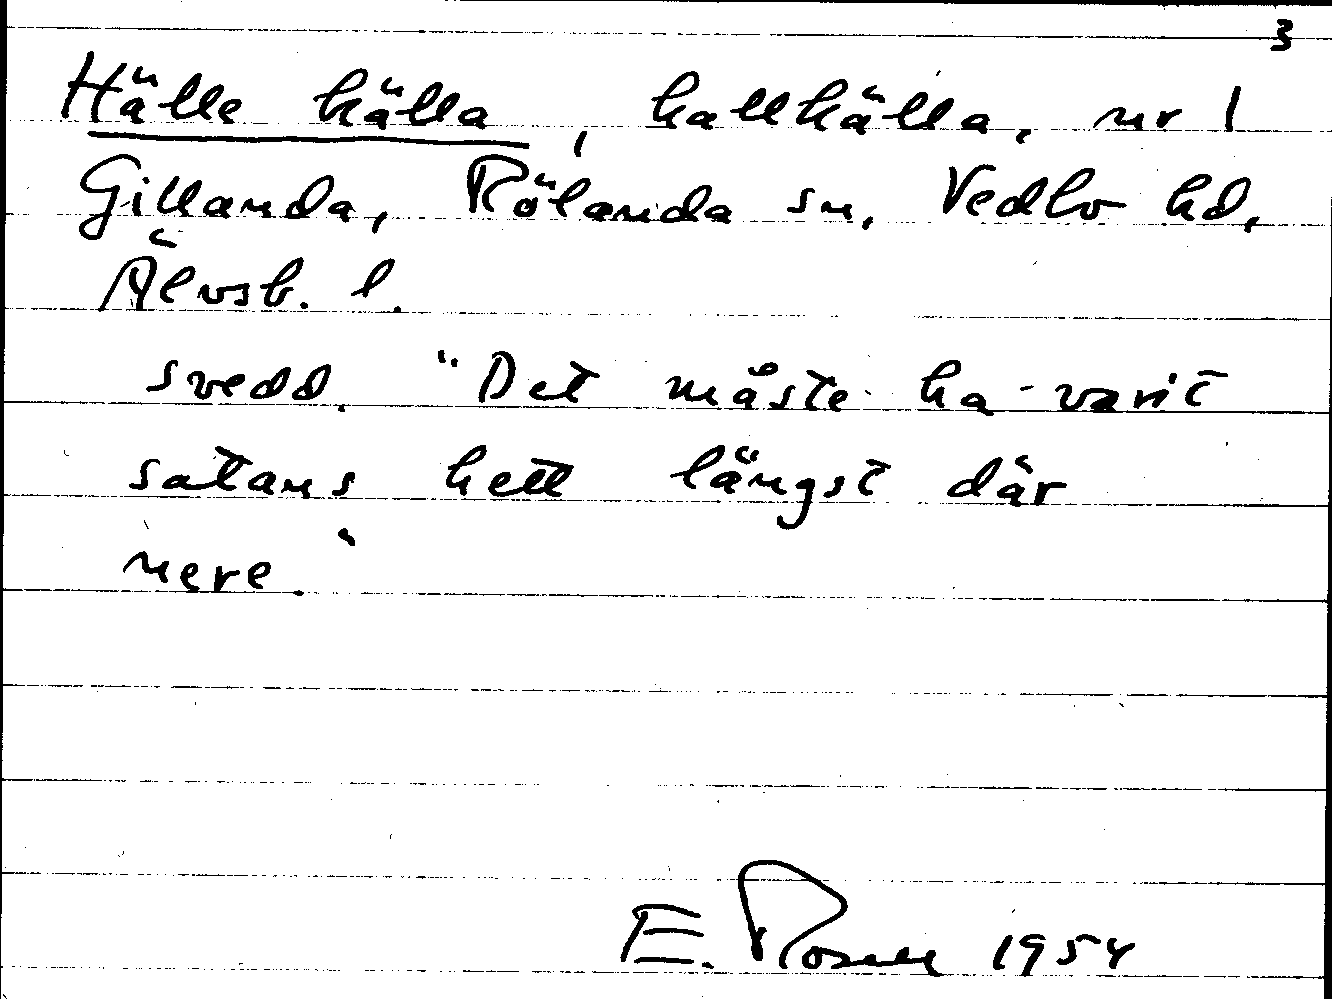 3
Hälle källa, kallkälla, nr 1
Gillanda, Rölanda sn, Vedbo hd,
Älvsb. l.
svedd. "Det måste ha varit
satans hett längst där
nere."
E. Rosell 1954